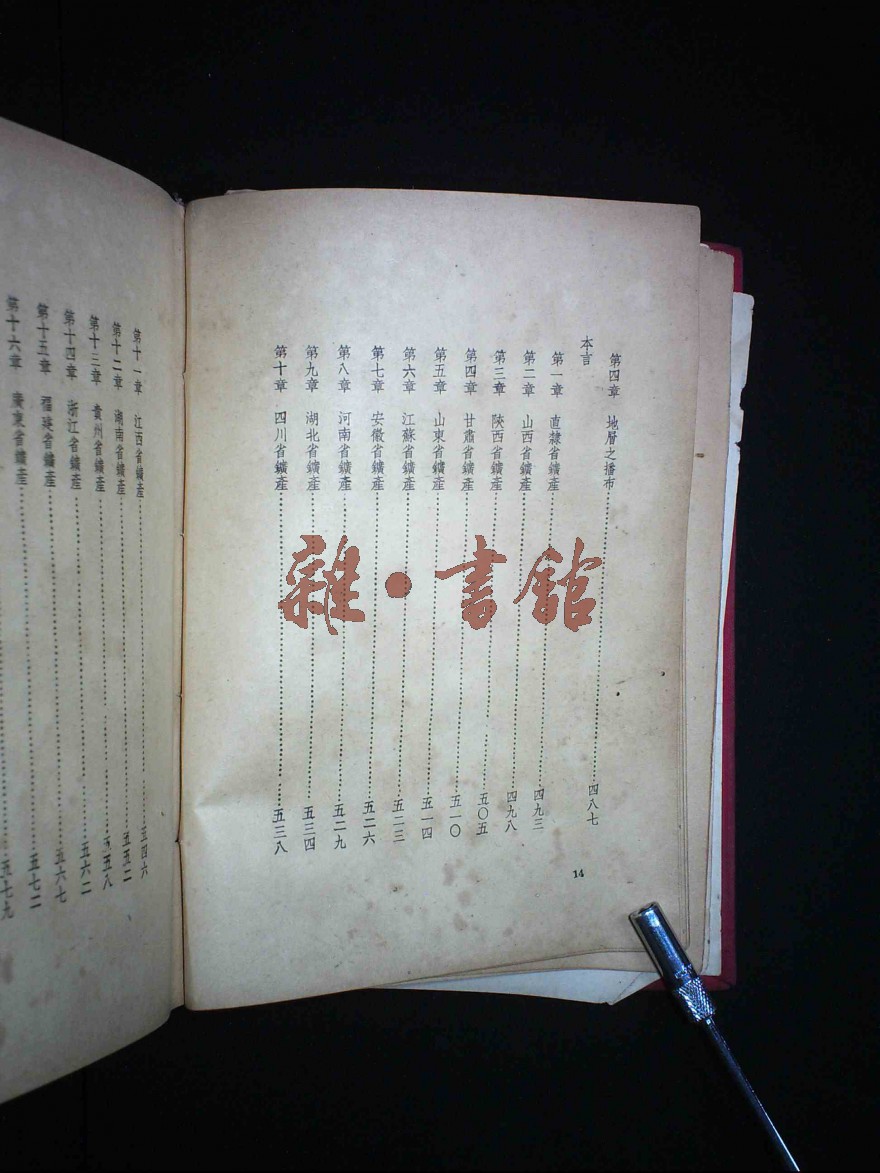 第四章 地層之播布……四八七
本言
第一章 直隸省鑛產……四九三
第二章 山西省鑛產……四九八
第三章 陝西省鑛產……五〇五
第四章 甘肅省鑛產……五一〇
第五章 山東省鑛產……五一四
第六章 江蘇省鑛產……五二三
第七章 安徽省鑛產……五二六
第八章 河南省鑛產……五二九
第九章 湖北省鑛產……五三四
第十章 四川省鑛產……五三八
14
第十一章 江西省鑛產……五四六
第十二章 湖南省鑛產……五五二
第十三章 貴州省鑛產……五五八
第十四章 浙江省鑛產……五六二
第十五章 福建省鑛產……五六七
第十六章 廣東省鑛產……五七二
五七九
雜·書館